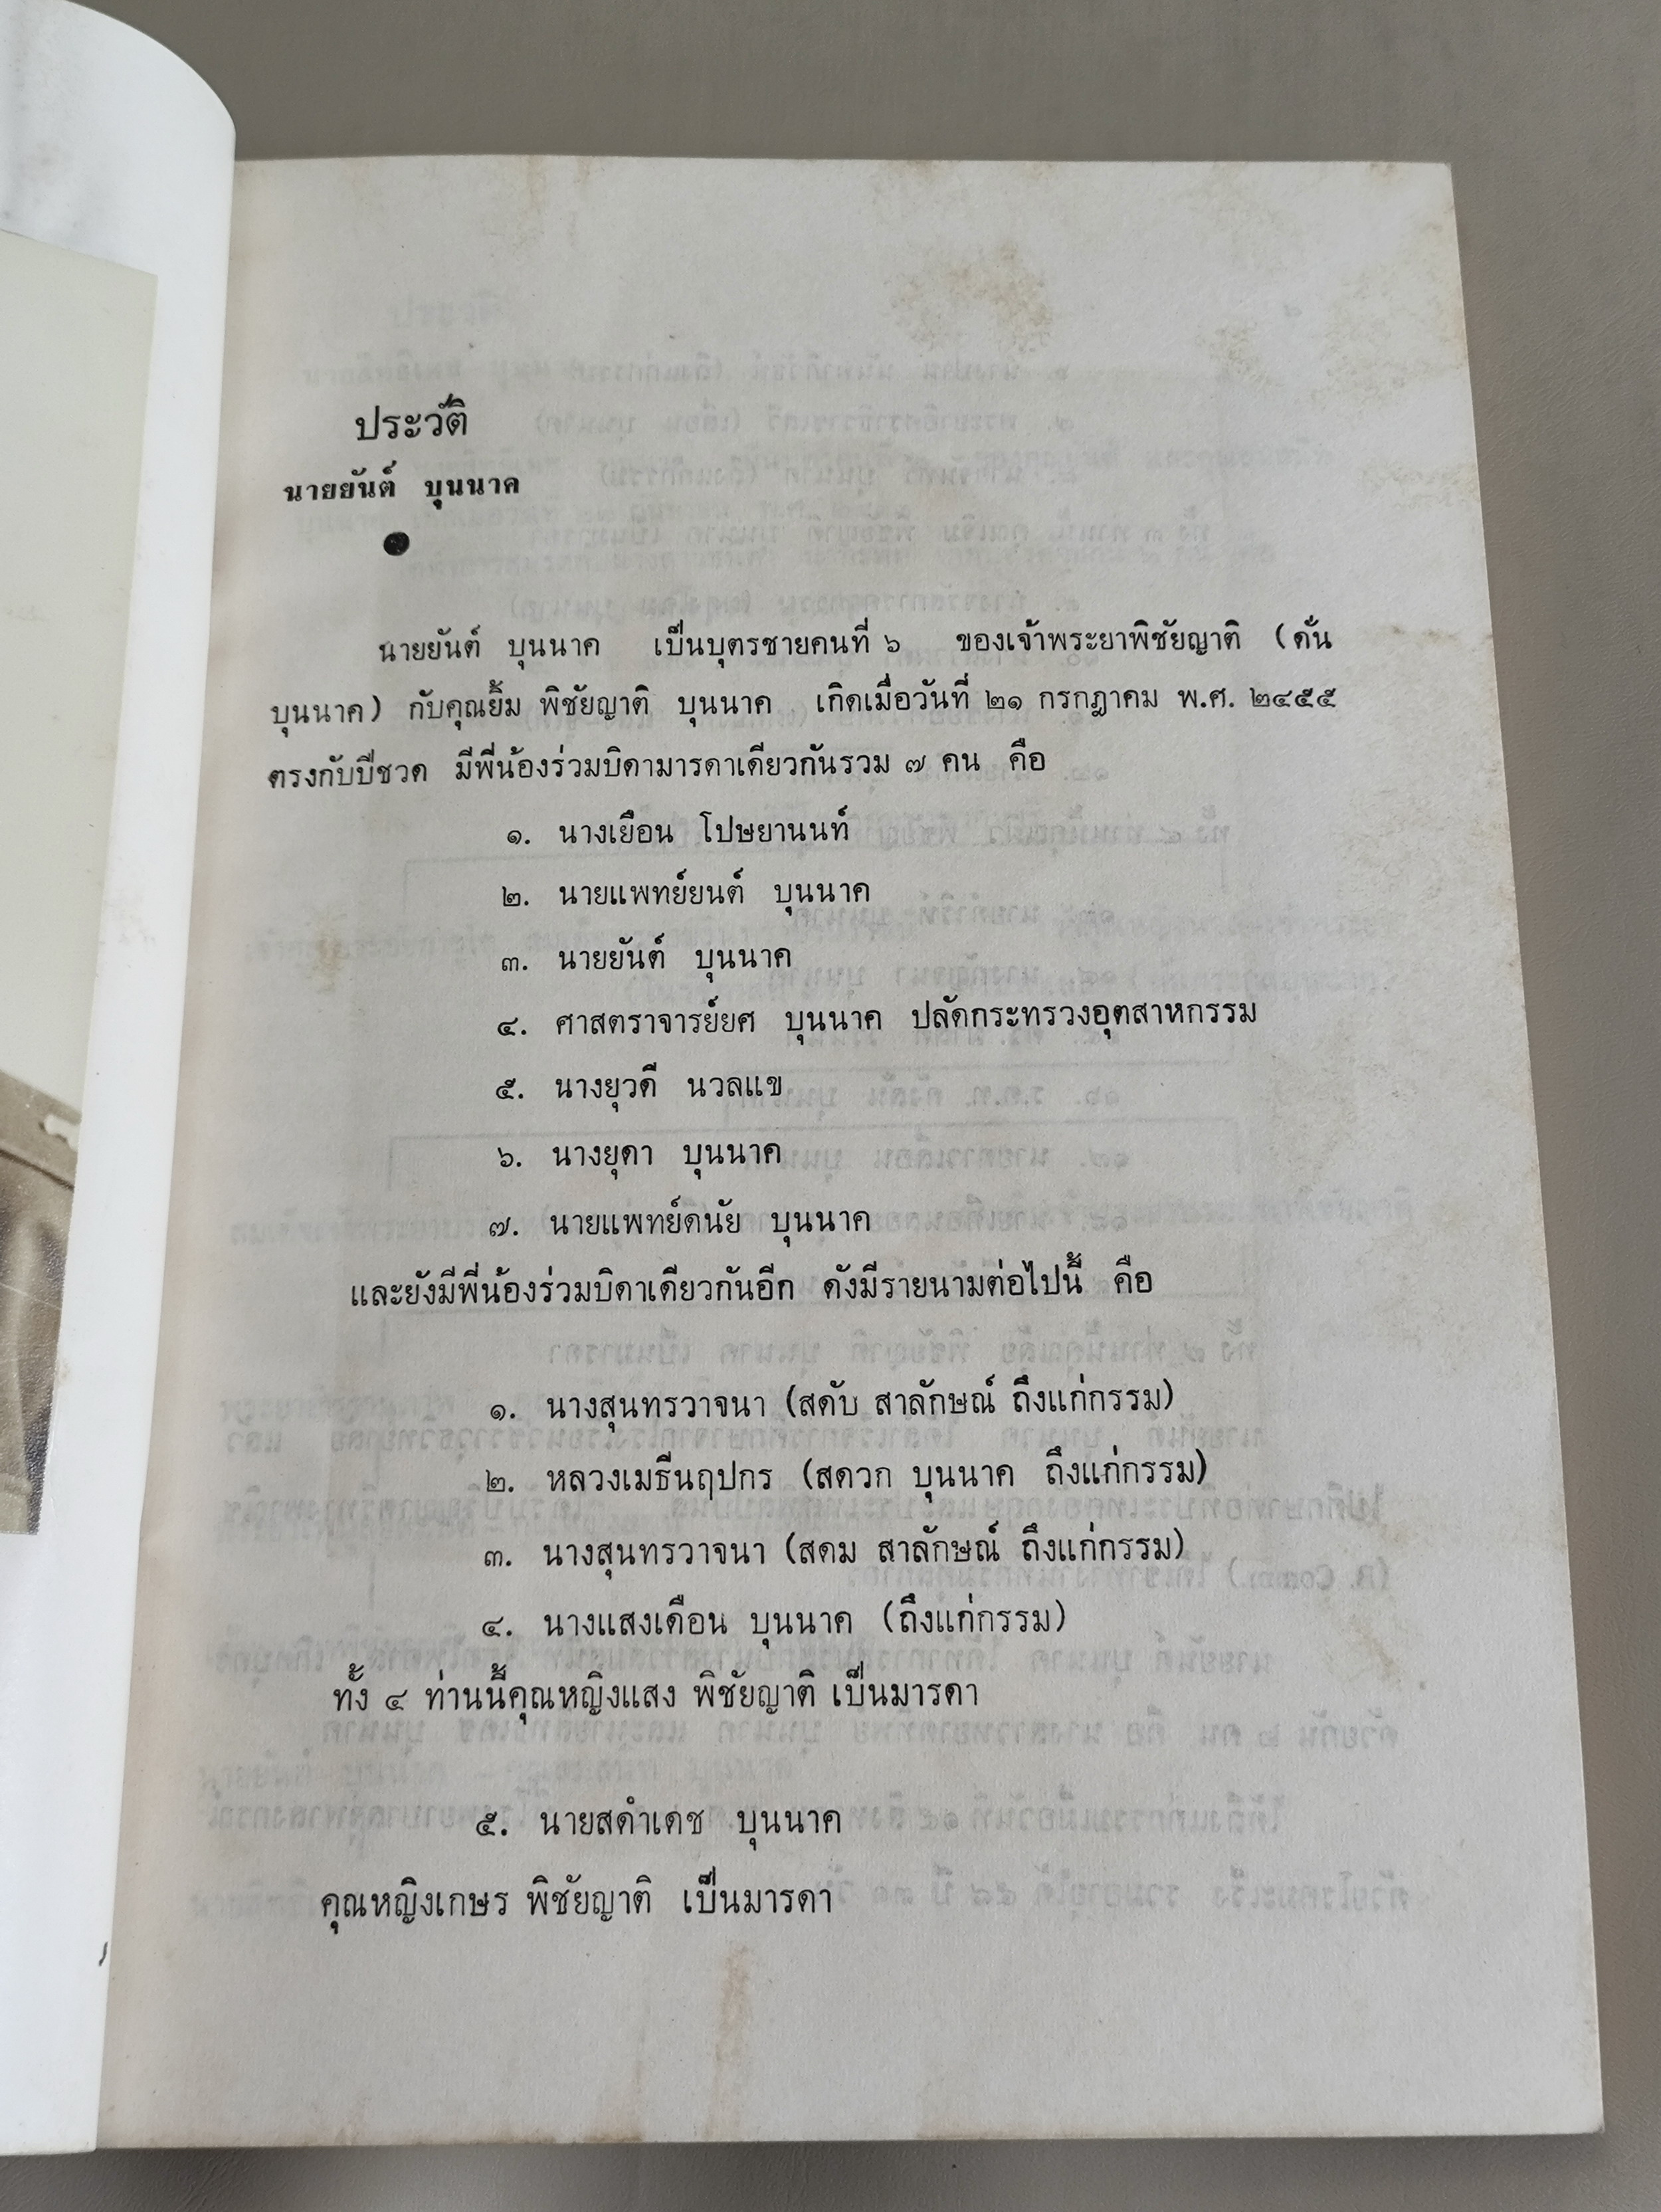 ประวัติ
นายยันต์ บุนนาค
นายยันต์ บุนนาค เป็นบุตรชายคนที่ ๖ ของเจ้าพระยาพิชัยญาติ (ดั่น
บุนนาค) กับคุณยิ้ม พิชัยญาติ บุนนาค เกิดเมื่อวันที่ ๒๑ กรกฎาคม พ.ศ. ๒๔๕๕
ตรงกับปีชวด มีพี่น้องร่วมบิดามารดาเดียวกันรวม ๗ คน คือ
๑. นางเยือน โปษยานนท์
๒. นายแพทย์ยนต์ บุนนาค
๓. นายยันต์ บุนนาค
๔. ศาสตราจารย์ยศ บุนนาค ปลัดกระทรวงอุตสาหกรรม
๕. นางยุวดี นวลแข
๖. นางยุดา บุนนาค
๗. นายแพทย์ดนัย บุนนาค
และยังมีพี่น้องร่วมบิดาเดียวกันอีก ดังมีรายนามต่อไปนี้ คือ
๑. นางสุนทรวาจนา (สดับ สาลักษณ์ ถึงแก่กรรม)
๒. หลวงเมธีนฤปกร (สดวก บุนนาค ถึงแก่กรรม)
๓. นางสุนทรวาจนา (สดม สาลักษณ์ ถึงแก่กรรม)
๔. นางแสงเดือน บุนนาค (ถึงแก่กรรม)
ทั้ง ๔ ท่านนี้คุณหญิงแสง พิชัยญาติ เป็นมารดา
๕. นายสดำเดช บุนนาค
คุณหญิงเกษร พิชัยญาติ เป็นมารดา